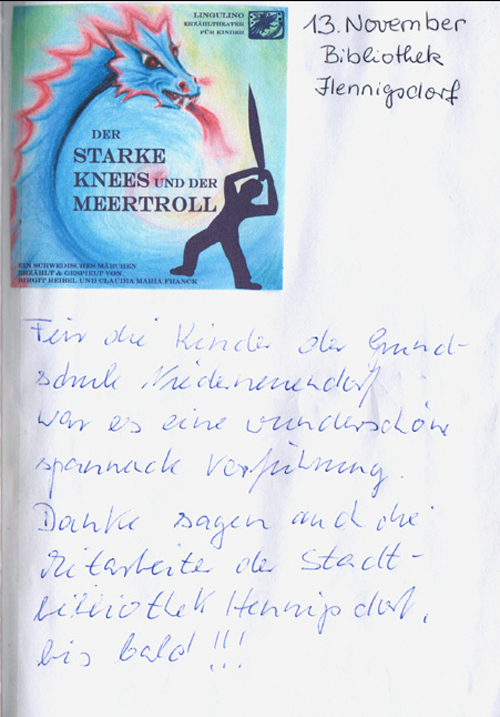 LINGULINO
ERZÄHLTHEATER
FÜR KINDER
13. November
Bibliothek
Hennigsdorf
DER
STARKE
KNEES UND DER
MEERTROLL
EIN SCHWEDISCHES MÄRCHEN
ERZÄHLT & GESPIELT VON
BIRGIT REIBEL UND CLAUDIA MARIA FRANCK
Für die Kinder der Grund-
schule Niederneuendorf
war es eine wunderschöne
spannende Vorführung.
Danke sagen auch die
Mitarbeiter der Stadt-
bibliothek Hennigsdorf,
bis bald!!!